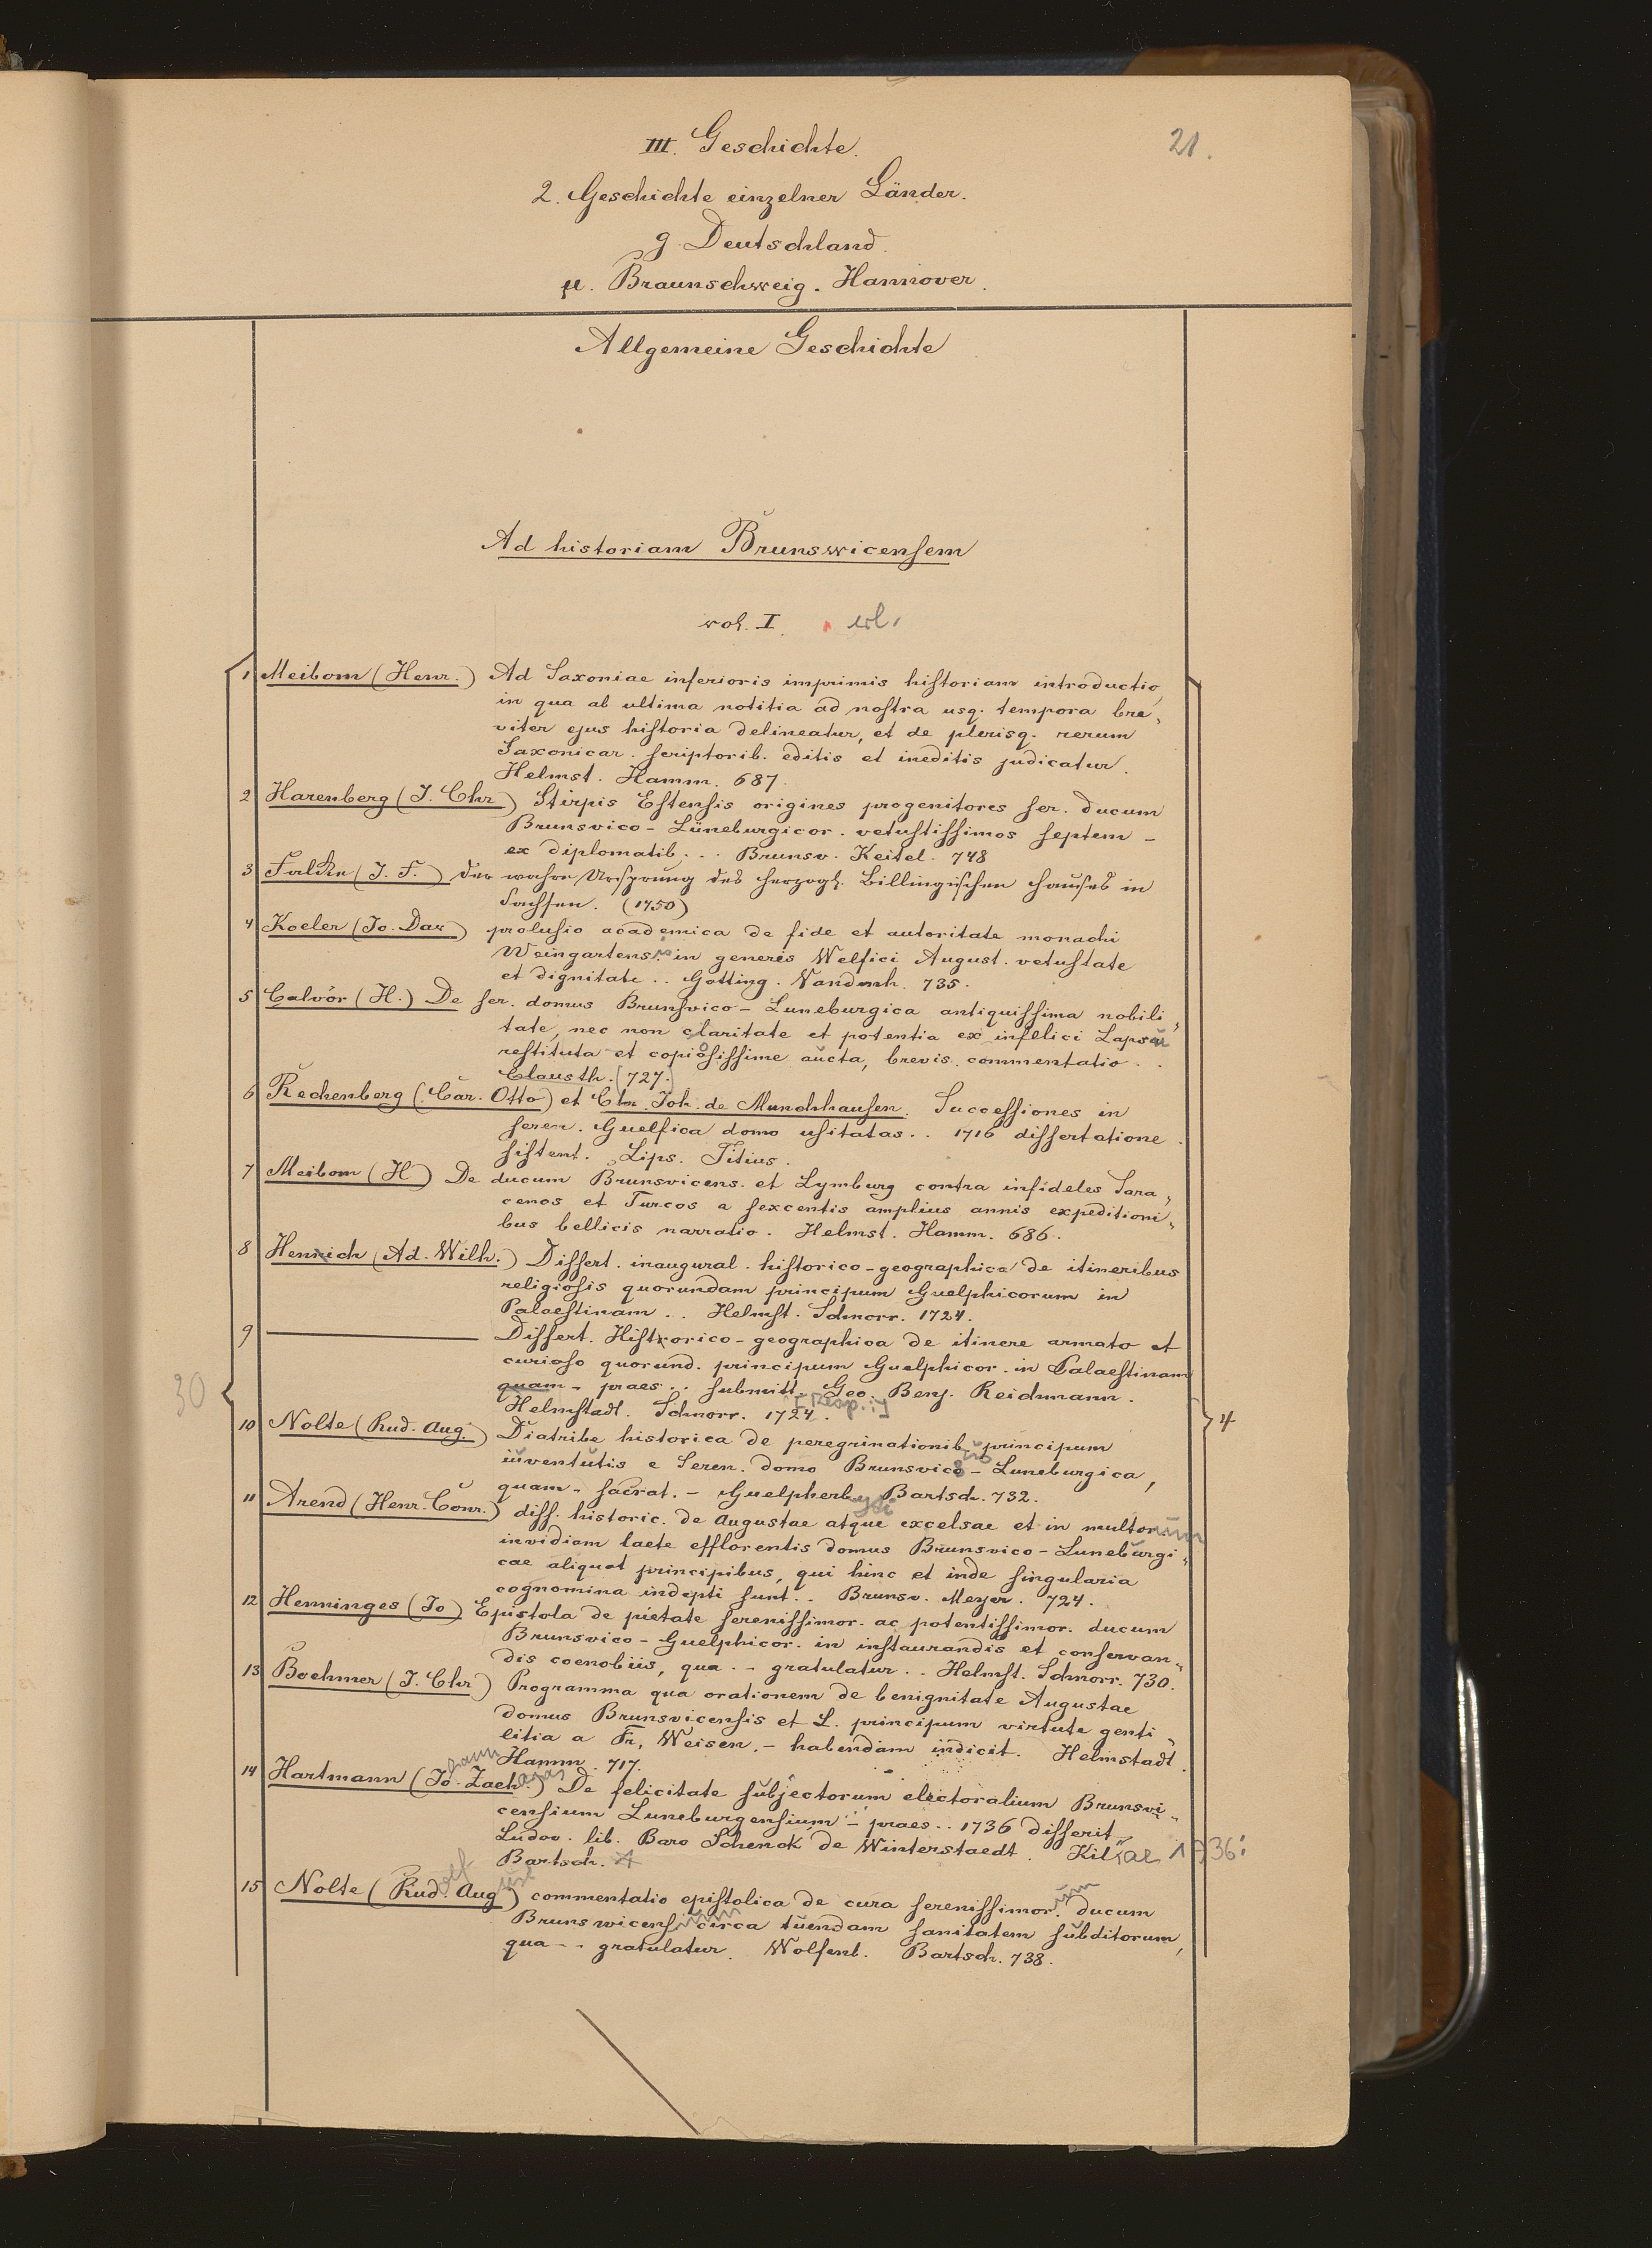 21.
III. Geschichte.
2. Geschichte einzelner Länder.
g. Deutschland.
µ. Braunschweig. Hannover.
Allgemeine Geschichte
Ad historiam Brunswicensem
vol. I. erl.
1 Meibom (Henr.) Ad Saxoniae inferioris imprimis historiam introductio,
in qua ab ultima notitia ad nostra usq. tempora bre„
viter ejus historia delineatur, et de plerisq. rerum
Saxonicar. scriptorib. editis et ineditis judicatur.
Helmst. Hamm. 687.
2 Harenberg (J. Chr.) Stirpis Estensis origines progenitores ser. ducum
Brunsvico-Lüneburgicor. vetustissimos septem -
ex diplomatib... Brunsv. Keitel. 748
3 Falcke (J. F.) Der wahre Ursprung des herzogl. Billingischen Hauses in
Sachsen. (1750)
4 Koeler (Jo. Dav) prolusio academica de fide et autoritate monachi
Weingartens. in generis Welfici August. vetustate
et dignitate.. Gotting. Vandenh. 735.
5 Calvör (H.) De ser. domus Brunsvico-Luneburgica antiquissima nobili„
tate, nec non claritate et potentia ex infelici Lapsu
restituta et copiosissime aucta, brevis commentatio..
Clausth. (727.)
6 Rechenberg (Car. Otto) et Chr. Joh. de Munchhausen. Successiones in
seren. Guelfica domo usitatas.. 1716 dissertatione
sistent. Lips. Titius.
7 Meibom (H) De ducum Brunsvicens. et Lymburg contra infideles Sara„
cenos et Turcos a sexcentis amplius annis expeditioni„
bus bellicis narratio. Helmst. Hamm. 686.
8 Henrich (Ad. Wilh.) Dissert. inaugural. historico-geographica de itineribus
religiosis quorundam principum Guelphicorum in
Palaestinam.. Helmst. Schnorr. 1724.
9 ——— Dissert. Historico-geographica de itinere armato et
curioso quorund. principum Guelphicor. in Palaestinam
quam - praes.. submitt. Geo. Benj. Reichmann.
Helmstadt. Schnorr. 1724. [Resp.:]
30
4
10 Nolte (Rud. Aug.) Diatribe historica de peregrinationib. principum
iuventutis e Seren. domo Brunsvico-Luneburgica,
quam - sacrat. - Guelpherbyti Bartsch. 732.
11 Arend (Henr. Conr.) diss. historic. de Augustae atque excelsae et in multorum
invidiam laete efflorentis domus Brunsvico-Luneburgi„
cae aliquot principibus, qui hinc et inde singularia
cognomina indepti sunt.. Brunsv. Meyer. 724.
12 Henninges (Jo) Epistola de pietate serenissimor. ac potentissimor. ducum
Brunsvico-Guelphicor. in instaurandis et conservan„
dis coenobiis, qua.- gratulatur.. Helmst. Schnorr. 730.
13 Boehmer (J. Chr.) Programma qua orationem de benignitate Augustae
domus Brunsvicensis et L. principum virtute genti„
litia a Fr. Weisen.- habendam indicit. Helmstadt.
Hamm. 717.
14 Hartmann (Jo. Zach.) De felicitate subjectorum electoralium Brunsvi„
censium Luneburgensium - praes.. 1736 disserit
Ludov. lib. Baro Schenck de Winterstaedt. Kiliae 1736:
Bartsch.
15 Nolte (Rudolf Aug.) commentatio epistolica de cura serenissimorum ducum
Brunswicensium circa tuendam sanitatem subditorum,
qua -. gratulatur. Wolfenb. Bartsch. 738.